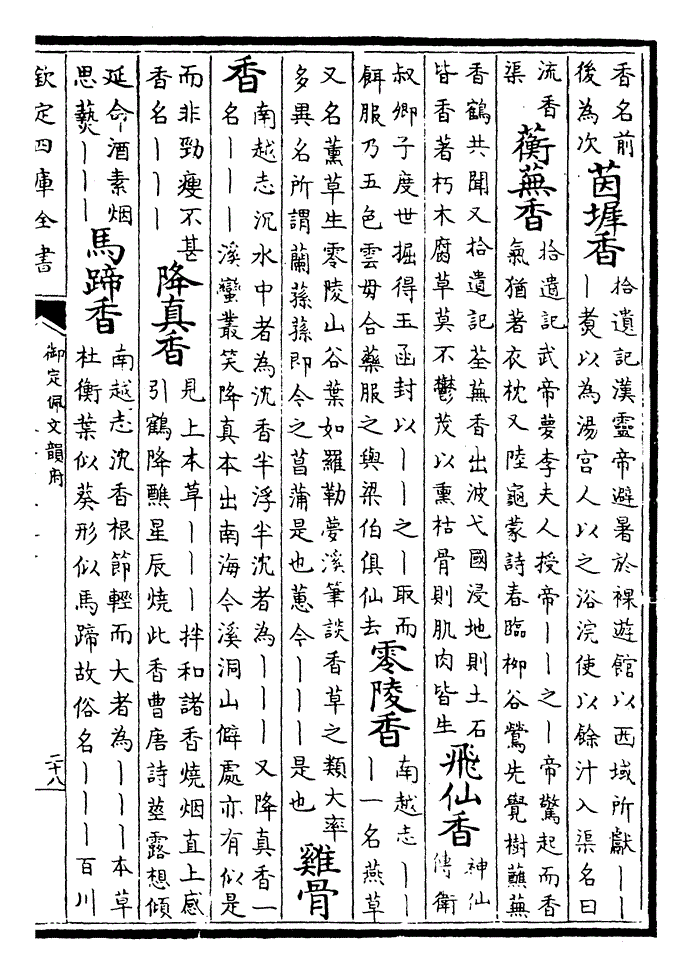 香名前
後為次
茵墀香
拾遺記漢靈帝避暑於裸遊館以西域所獻丨丨
丨煑以為湯宫人以之浴浣使以餘汁入渠名曰
流香
渠
蘅蕪香
拾遺記武帝夢李夫人授帝丨丨之丨帝驚起而香
氣猶著衣枕又陸龜蒙詩春臨栁谷鶯先覺樹蘸蕪
香鶴共聞又拾遺記荃蕪香出波弋國浸地則土石
皆香著朽木腐草莫不鬱茂以熏枯骨則肌肉皆生
飛仙香
神仙
傳衛
叔卿子度世掘得玉函封以丨丨之丨取而
餌服乃五色雲毋合藥服之與梁伯俱仙去
零陵香
南越志丨丨
丨一名燕草
又名薰草生零陵山谷葉如羅勒夢溪筆談香草之類大率
多異名所謂蘭蓀蓀即今之菖蒲是也蕙今丨丨丨是也
雞骨
香
南越志沉水中者為沈香半浮半沈者為丨丨丨又降真香一
名丨丨丨溪蠻叢笑降真本出南海今溪洞山僻處亦有似是
而非勁瘦不甚
香名丨丨丨
降真香
見上本草丨丨丨拌和諸香燒烟直上感
引鶴降醮星辰燒此香曹唐詩莖露想傾
延命酒素烟
思爇丨丨丨
馬蹄香
南越志沈香根節輕而大者為丨丨丨本草
杜衡葉似葵形似馬蹄故俗名丨丨丨百川
欽定四庫全書
御定佩文韻府
二十八